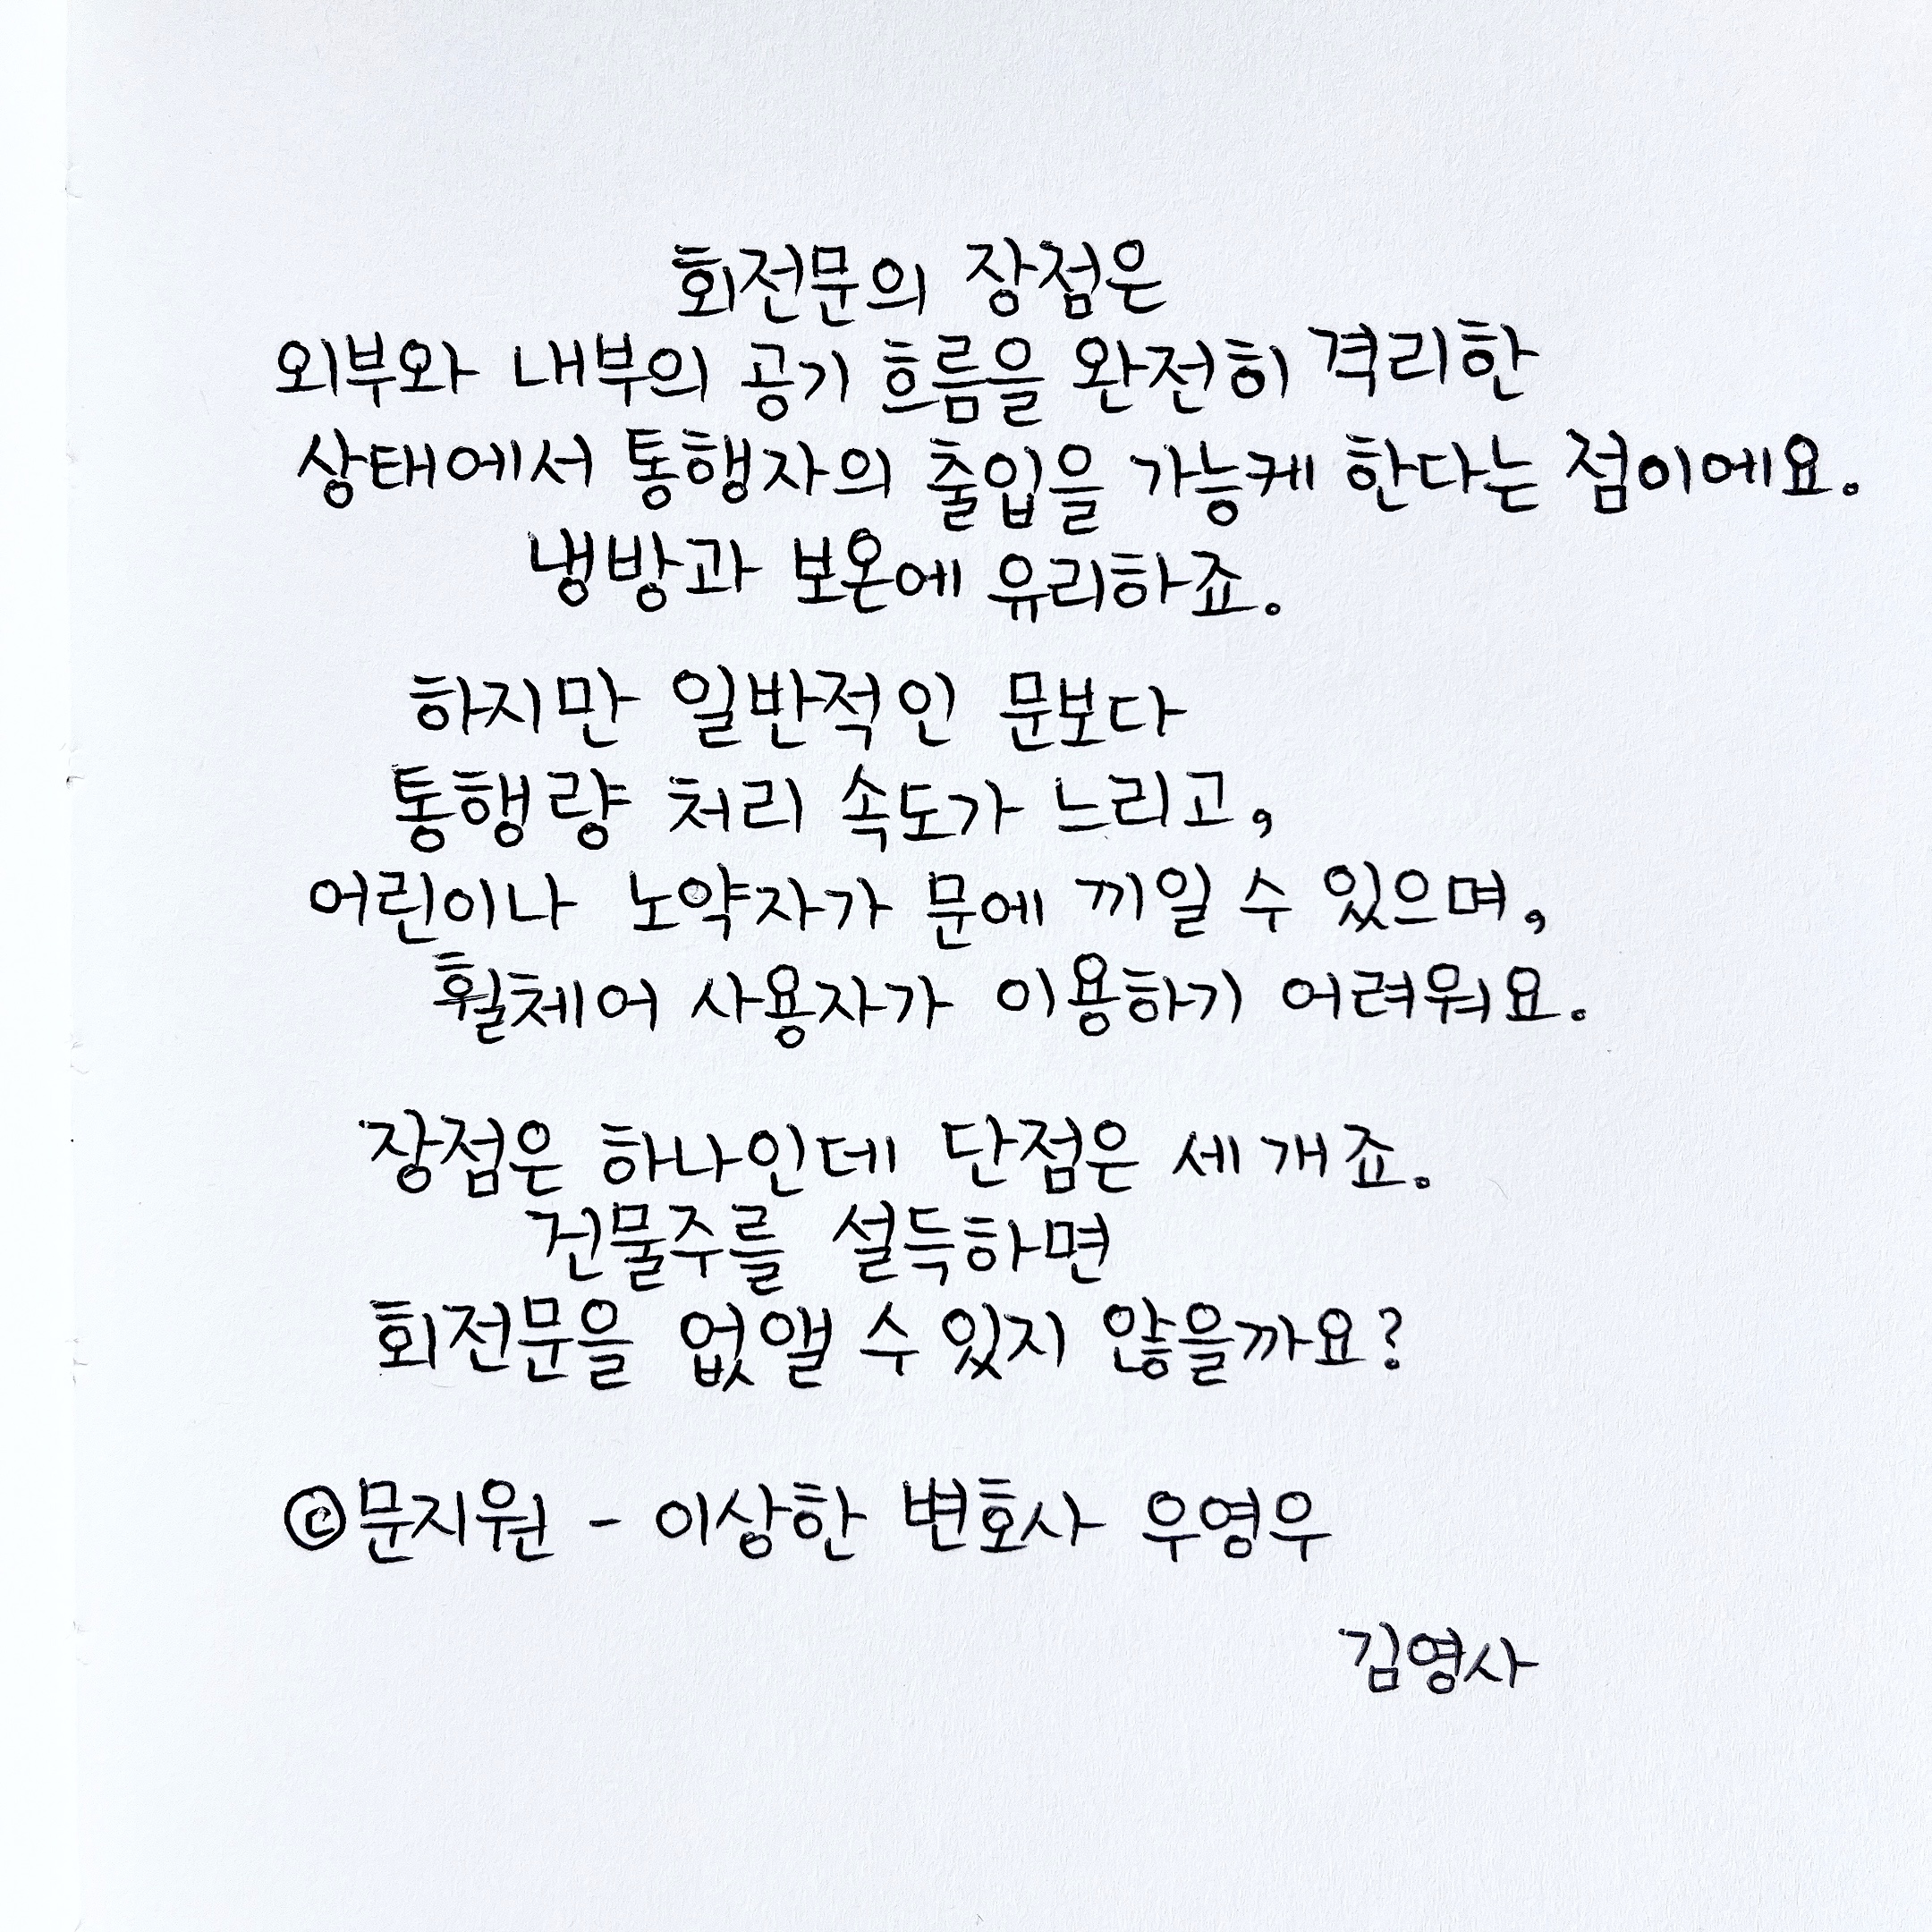 회전문의 장점은
외부와 내부의 공기 흐름을 완전히 격리한
상태에서 통행자의 출입을 가능케 한다는 점이에요.
냉방과 보온에 유리하죠.
하지만 일반적인 문보다
통행량 처리 속도가 느리고,
어린이나 노약자가 문에 끼일 수 있으며,
휠체어 사용자가 이용하기 어려워요.
장점은 하나인데 단점은 세 개죠.
건물주를 설득하면
회전문을 없앨 수 있지 않을까요?
©문지원 - 이상한 변호사 우영우
김영사